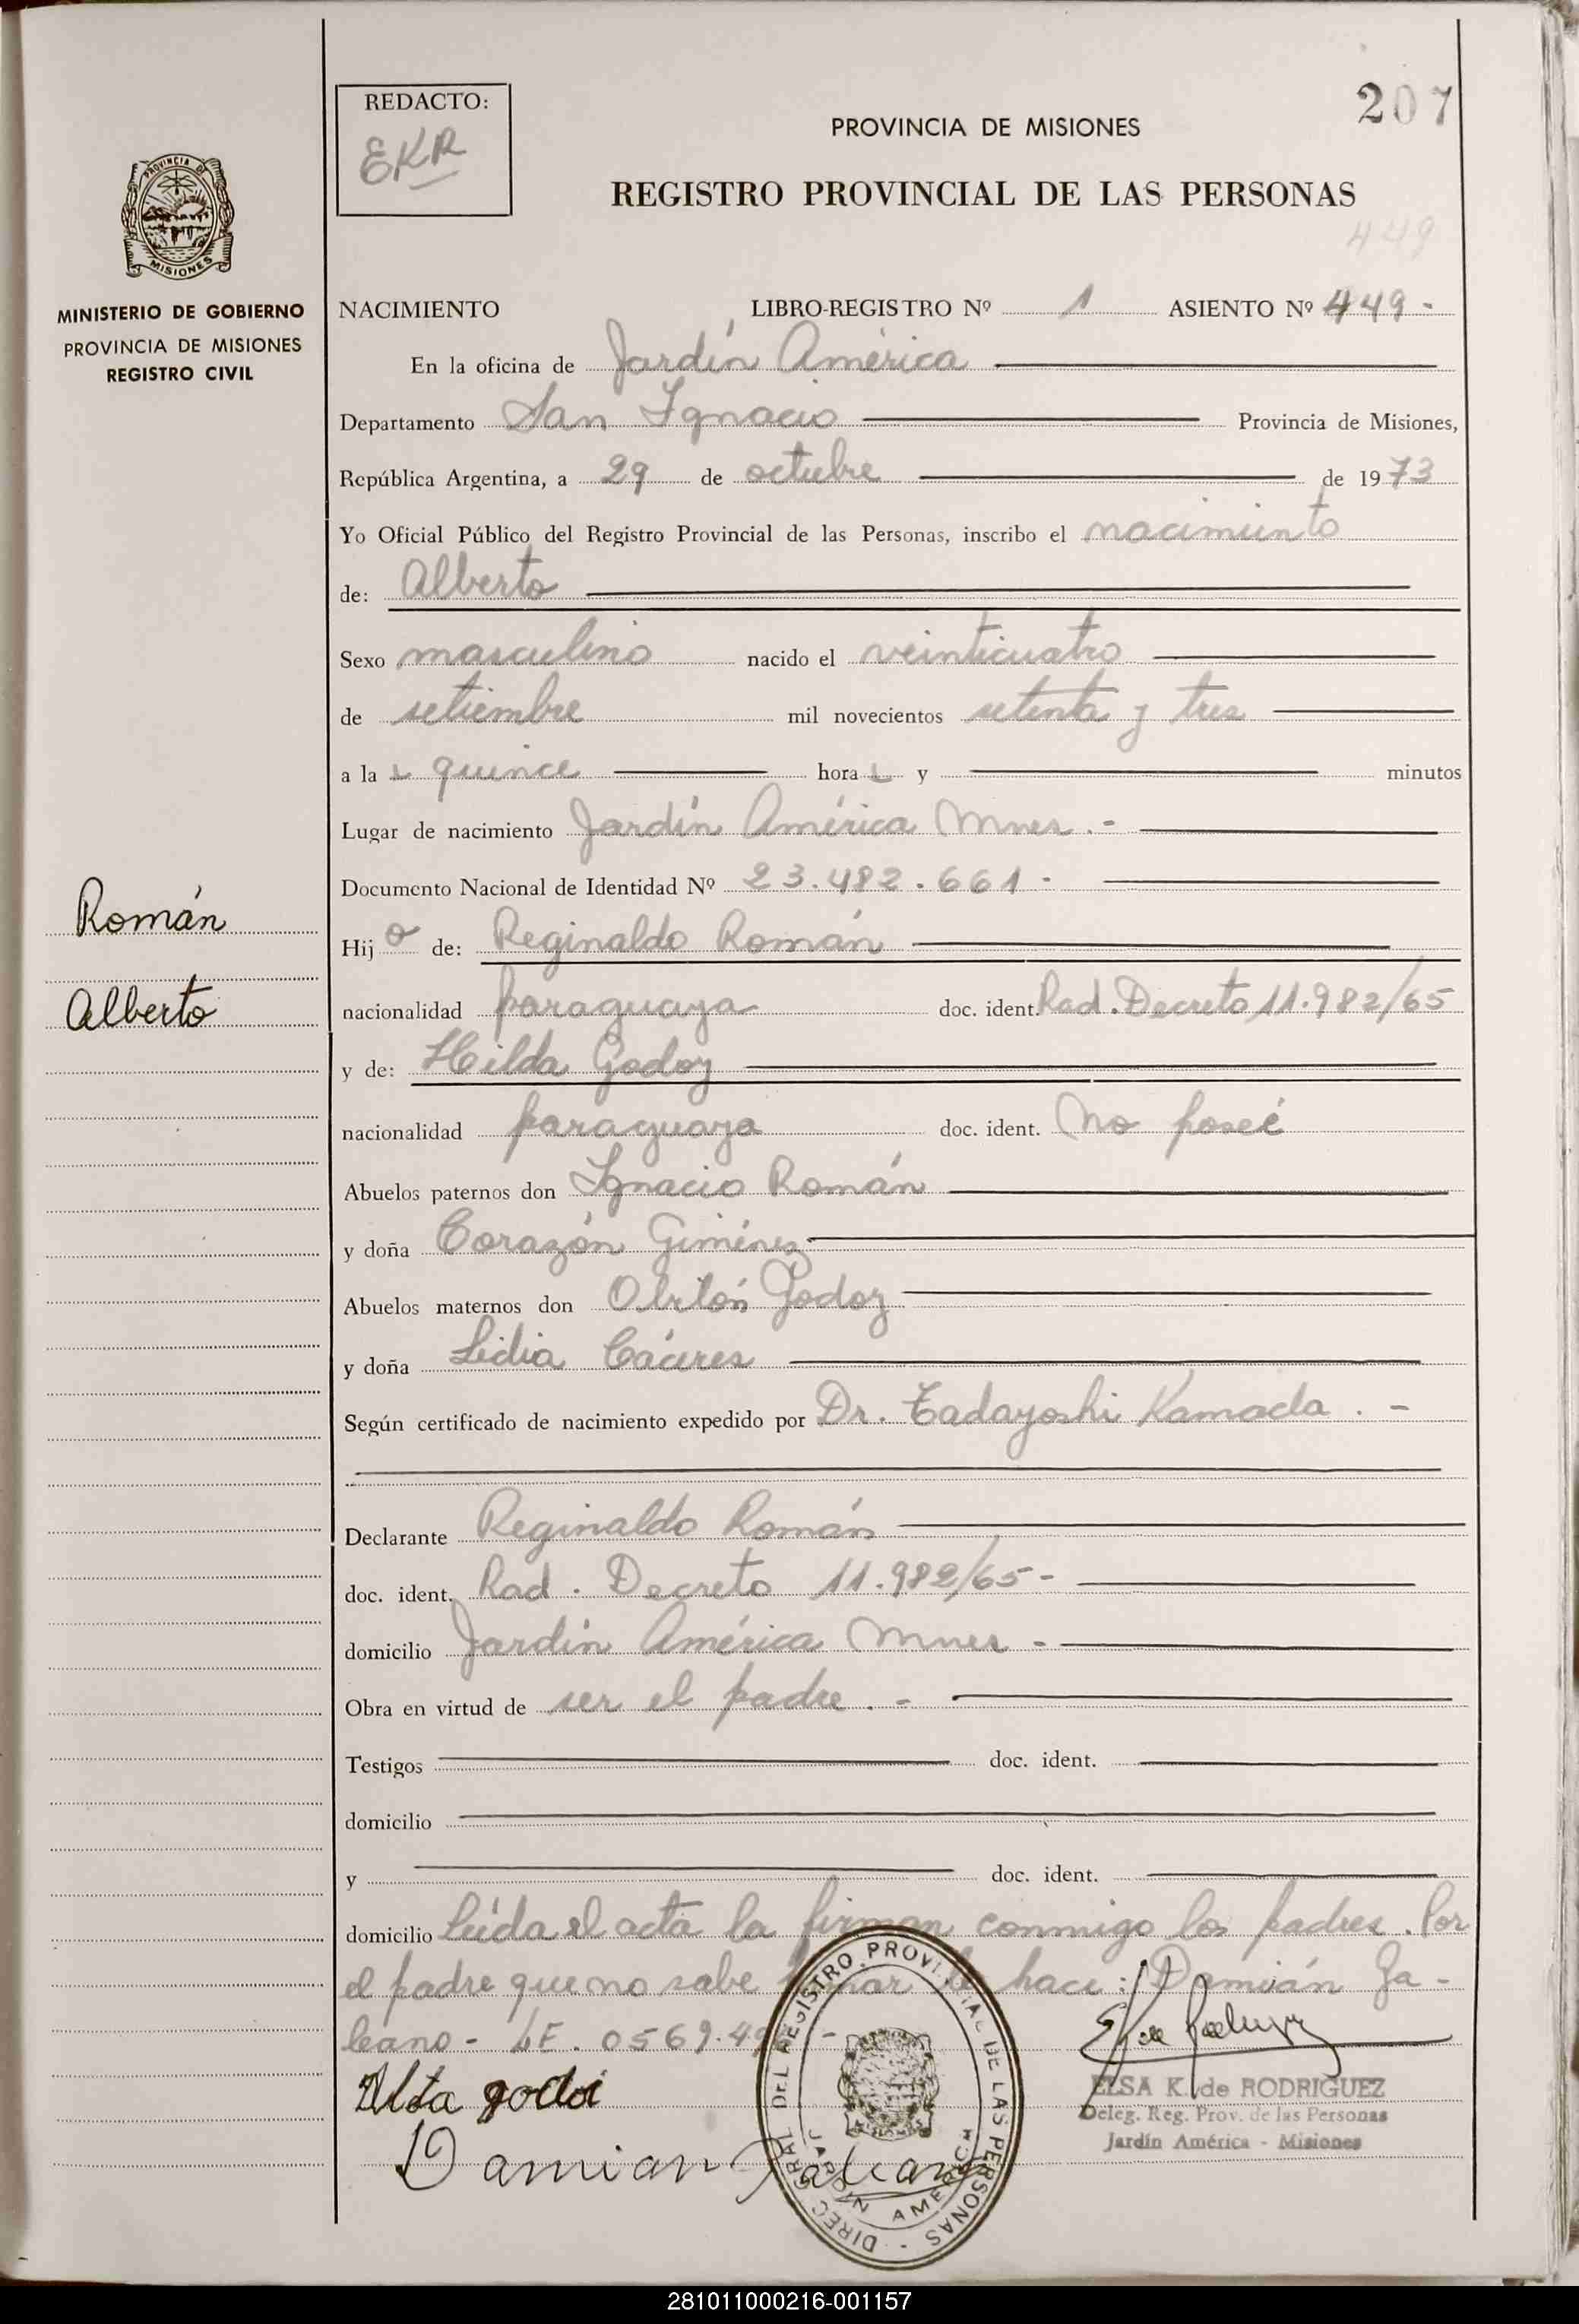 207
REDACTO:
EKR
PROVINCIA DE MISIONES
REGISTRO PROVINCIAL DE LAS PERSONAS
449
PROVINCIA DE
MISIONES
MINISTERIO DE GOBIERNO
PROVINCIA DE MISIONES
REGISTRO CIVIL
NACIMIENTO LIBRO-REGISTRO Nº 1 ASIENTO Nº 449-
En la oficina de Jardín América
Departamento San Ignacio Provincia de Misiones,
República Argentina, a 29 de octubre de 1973
Yo Oficial Público del Registro Provincial de las Personas, inscribo el nacimiento
de: Alberto
Sexo masculino nacido el veinticuatro
de setiembre mil novecientos setenta y tres
a la s quince hora s y minutos
Lugar de nacimiento Jardín América Mnes.-
Documento Nacional de Identidad Nº 23.482.661-
Román
Hij o de: Reginaldo Román
Alberto
nacionalidad paraguaya doc. ident. Rad. Decreto 11.982/65
y de: Hilda Godoy
nacionalidad paraguaya doc. ident. No poseé
Abuelos paternos don Ignacio Román
y doña Corazón Giménez
Abuelos maternos don Godoy
y doña Lidia Cáceres
Según certificado de nacimiento expedido por Dr. Tadayoshi Kamada.-
Declarante Reginaldo Román
doc. ident. Rad. Decreto 11.982/65-
domicilio Jardín América Mnes-
Obra en virtud de ser el padre.-
Testigos doc. ident.
domicilio
y doc. ident.
domicilio Leída el acta la firman conmigo los padres. Por
el padre que no sabe firmar lo hace: Damián Ga-
leano- LE. 0569.
godoi
Damian Galeano
DIREC. GRAL. DEL REGISTRO PROVINCIAL DE LAS PERSONAS
JARDIN AMERICA
MISIONES
ELSA K. de RODRIGUEZ
Deleg. Reg. Prov. de las Personas
Jardín América - Misiones
281011000216-001157